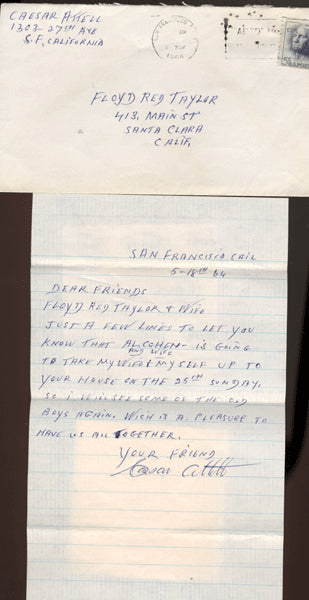 CAESAR ATTELL
1303-27TH AVE
S.F, CALIFORNIA
FLOYD RED TAYLOR
413, MAIN ST
SANTA CLARA
CALIF,
5¢
SAN FRANCISCO CAIL
5-18TH 64
DEAR FRIENDS
FLOYD RED TAYLOR + WIFE
JUST A FEW LINES TO LET YOU
KNOW THAT AL COHEN- IS GOING
AND WIFE
TO TAKE MY WIFE & MYSELF UP TO
YOUR HOUSE ON THE 25TH SUNDAY.
SO I WILL SEE SOME OF THE OLD
BOYS AGAIN. WICH IS A PLEASURE TO
HAVE US ALL TOGETHER.
YOUR FRIEND
Caesar Attell